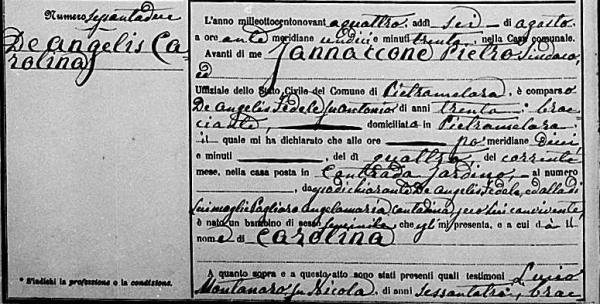 Numero sessantadue
De Angelis Ca
rolina
L'anno milleottocentonovantaquattro, addì sei di agosto
a ore anti meridiane undici e minuti trenta, nella Casa comunale.
Avanti di me Iannaccone Pietro Sindaco,
ed
Uffiziale dello Stato Civile del Comune di Pietramelara, è comparso
De Angelis Fedele fu Antonio di anni trenta, brac
ciante, domiciliato in Pietramelara
il quale mi ha dichiarato che alle ore po meridiane dieci
e minuti , del dì quattro, del corrente
mese, nella casa posta in Contrada Jardino al numero
, da dichiarante De Angelis Fedele, e dalla di
lui moglie Pagliaro Angelamaria, contadina, seco lui convivente
è nato un bambino di sesso femminile che gli mi presenta, e a cui dà il
nome di Carolina
A quanto sopra e a questo atto sono stati presenti quali testimoni Luigi
Montanaro fu Nicola, di anni sessantatre, brac
* S'indichi la professione o la condizione.